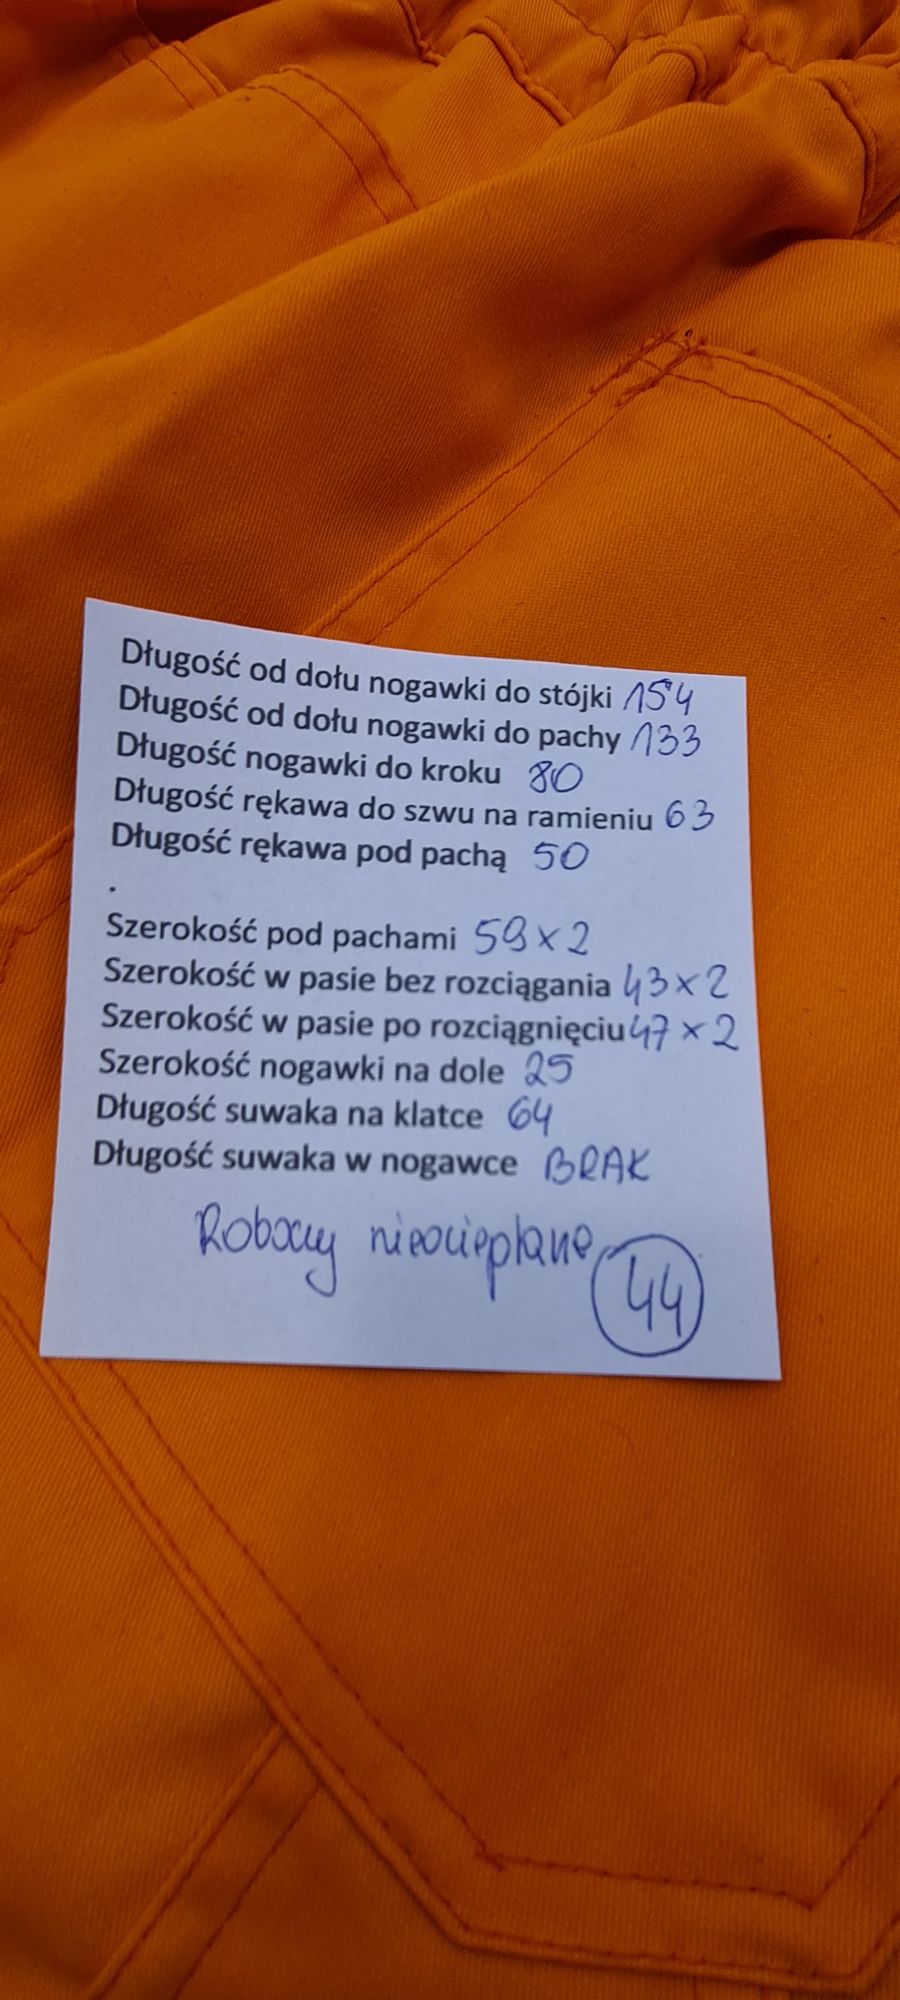 Długość od dołu nogawki do stójki 154
Długość od dołu nogawki do pachy 133
Długość nogawki do kroku 80
Długość rękawa do szwu na ramieniu 63
Długość rękawa pod pachą 50
.
Szerokość pod pachami 59 x 2
Szerokość w pasie bez rozciągania 43 x 2
Szerokość w pasie po rozciągnięciu 47 x 2
Szerokość nogawki na dole 25
Długość suwaka na klatce 64
Długość suwaka w nogawce BRAK
Roboczy nieocieplane
44